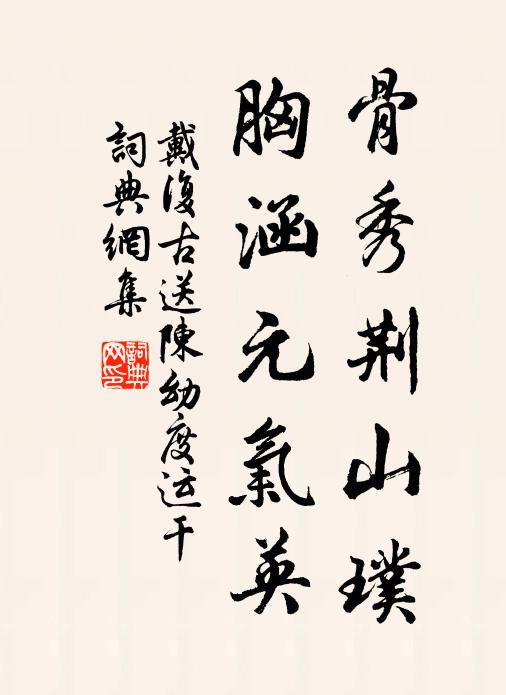 骨秀荆山璞
胸涵元氣英
戴復古送陳幼度运干
詞典網集
詞典
网印